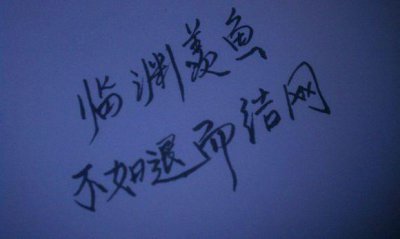 临渊羡鱼
不如退而结网